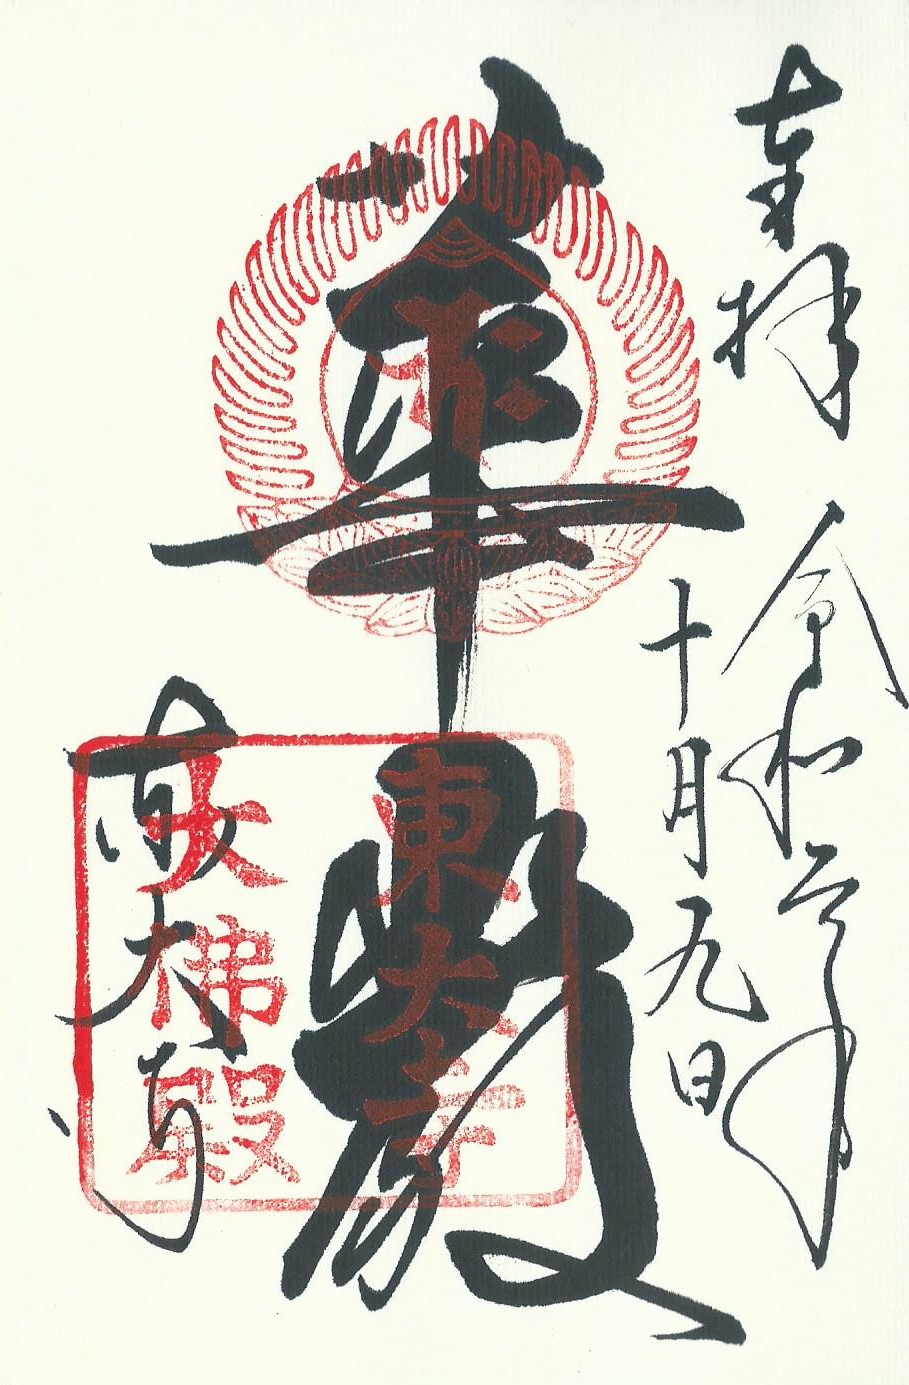 奉拝 令和元年
十月九日
華嚴
東大寺
東大寺
大佛殿